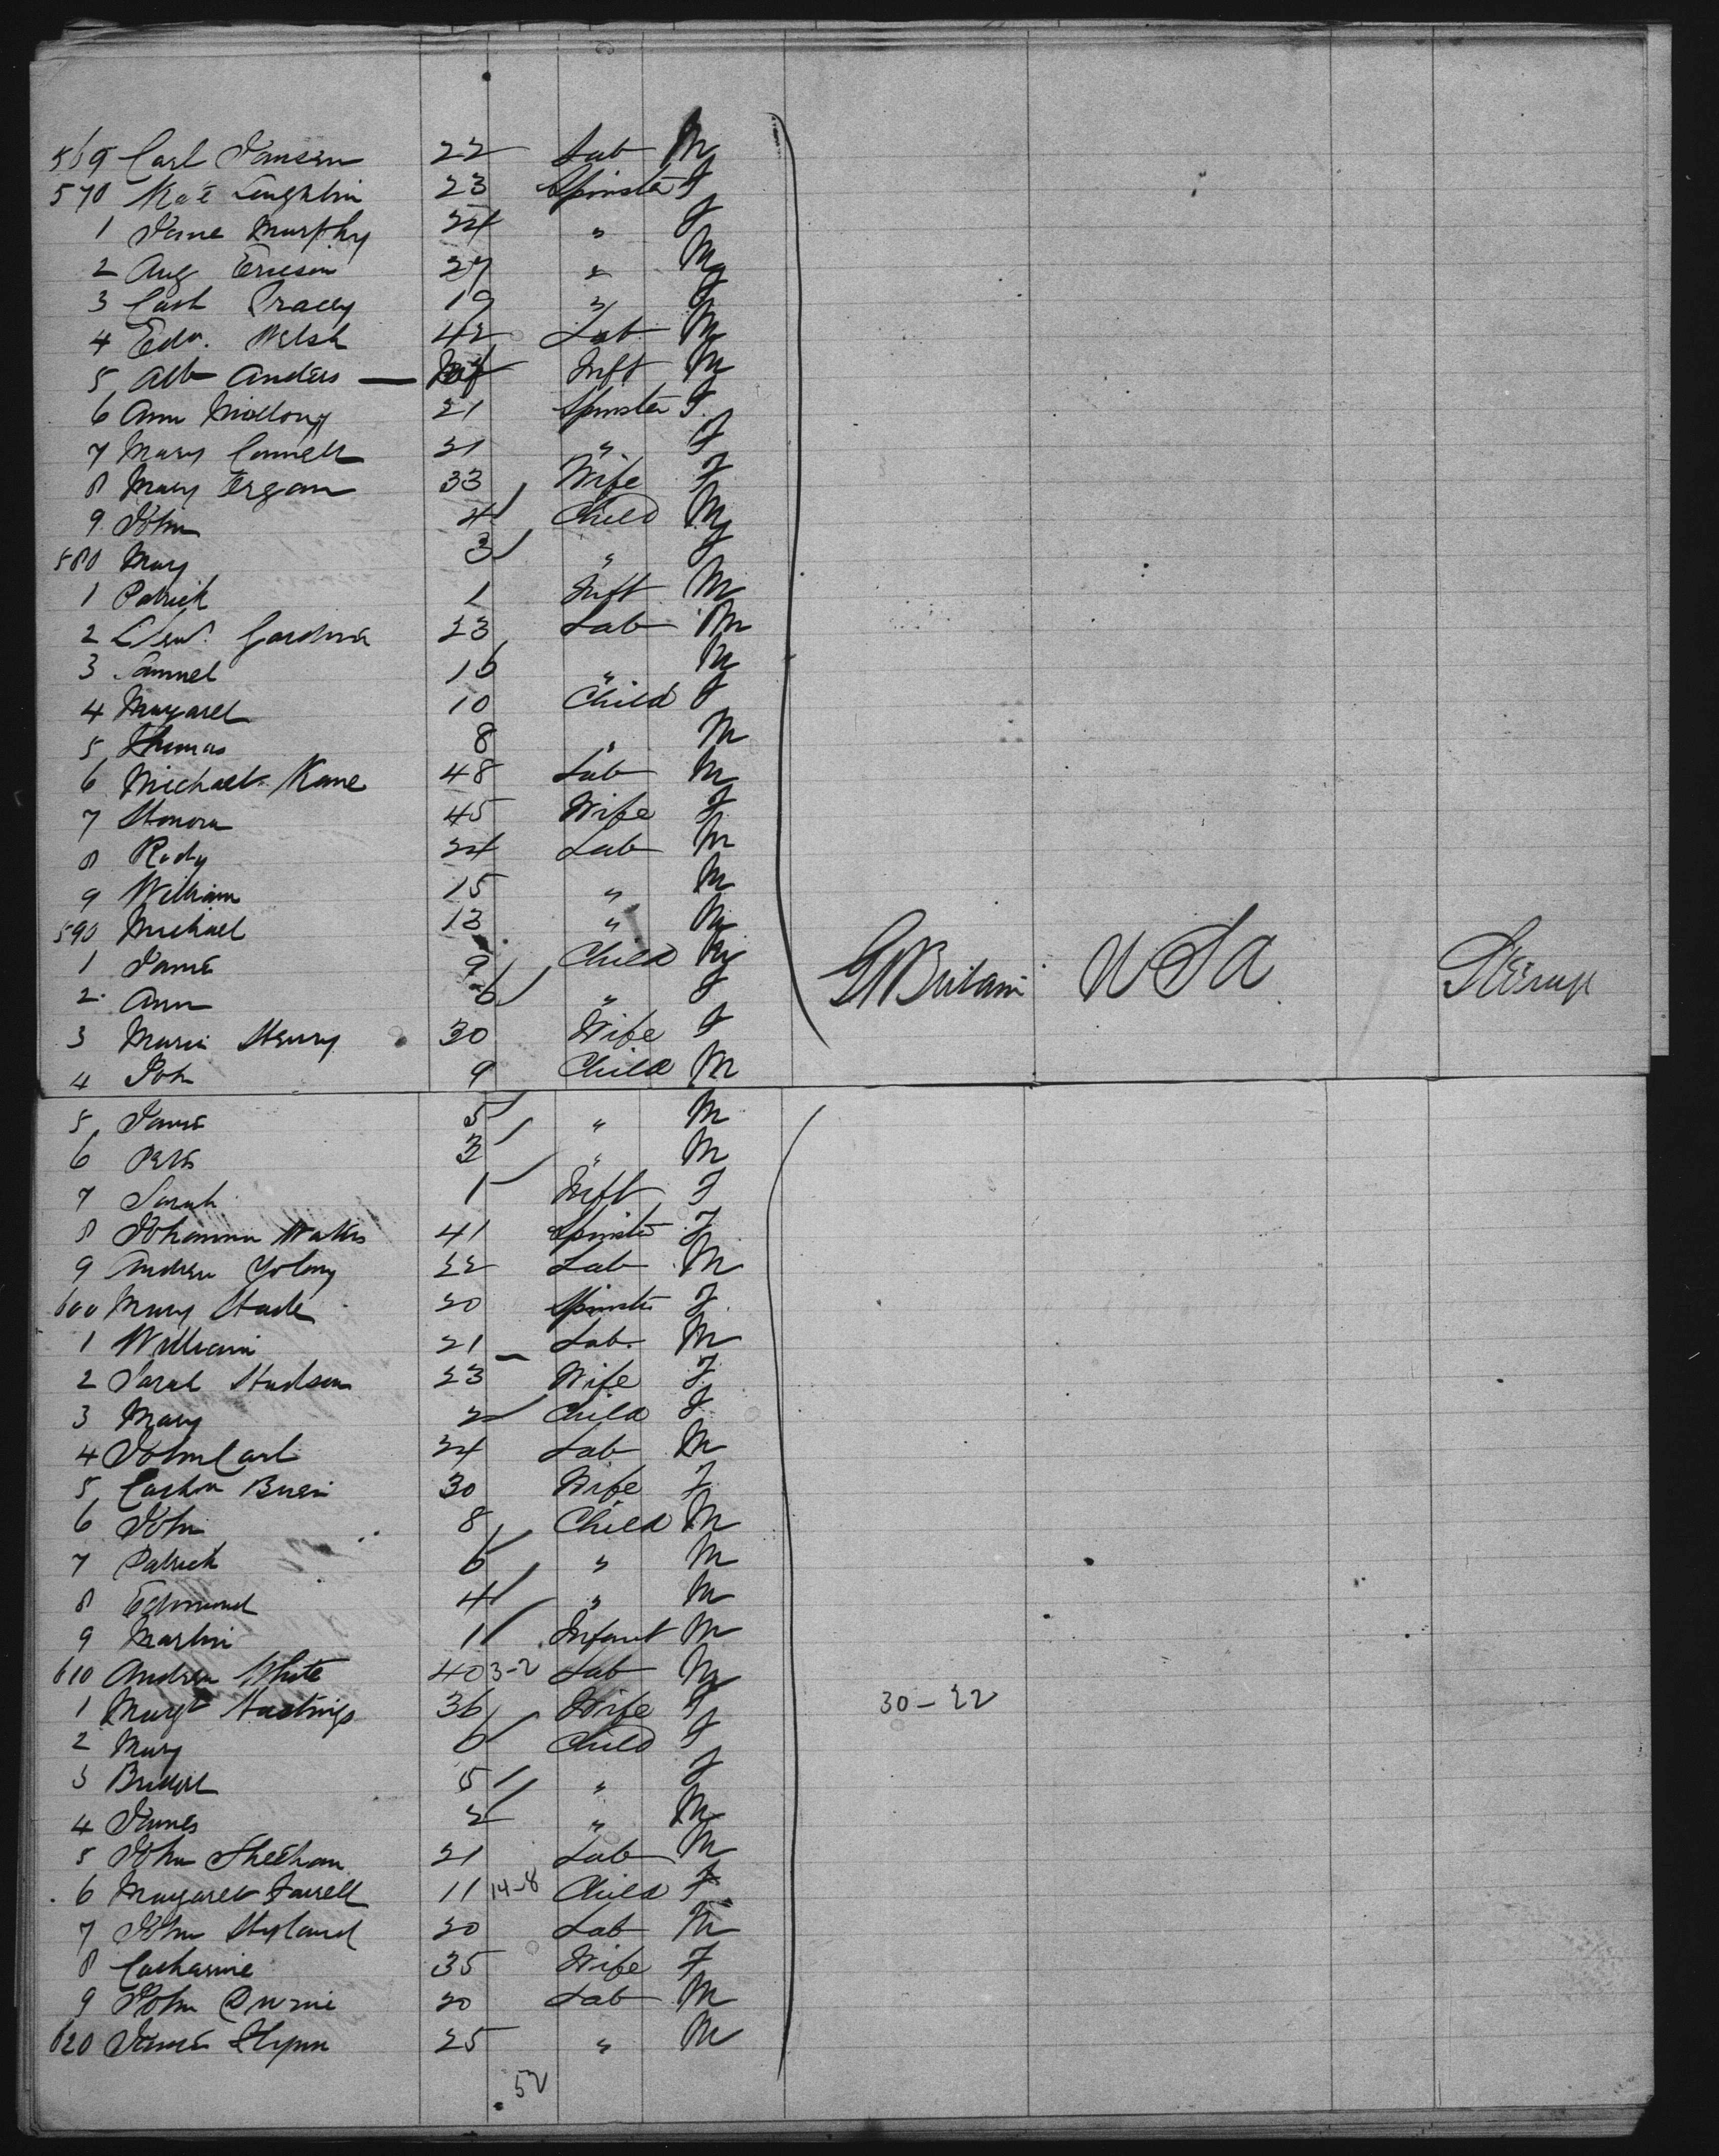 569 Carl Jansen 22 Lab M
570 Kate Loughlin 23 Spinster F
1 Jane Murphy 24 " F
2 Aug Ericson 27 " M
3 Cath Tracey 19 " F
4 Edw. Welsh 42 Lab M
5 Alb Anders — Inft M
6 Ann Mollony 21 Spinster F.
7 Mary Connell 21 " F
8 Mary Ergan 33 Wife F
9 John 4 Child M
580 Mary 3 " F
1 Patrick 1 Inft M
2 Gardner 23 Lab M
3 Samuel 16 " M
4 Margaret 10 Child F
5 Thomas 8 " M
6 Michael Kane 48 Lab M
7 Honora 45 Wife F
8 Rody 24 Lab M
9 William 15 " M
590 Michael 13 " M
1 James 9 Child M
2 Ann 6 " F Gt Britain U S A Steerage
3 Maria Henry 30 Wife F
4 John 9 Child M
5 James 5 " M
6 Peter 3 " M
7 Sarah 1 Inft F
8 Johanna Watters 41 Spinster F
9 Andrew 22 Lab M
600 Mary 20 Spinster F.
1 William 21 Lab. M
2 Sarah Hudson 23 Wife F
3 Mary 2 Child F
4 John Carl 24 Lab M
5 30 Wife F
6 John 8 Child M
7 Patrick 6 " M
8 Edmund 4 " M
9 Martin 1 Infant M
610 Andrew White 40 3-2 Lab M
1 Margt Hastings 36 Wife F 30-22
2 Mary 6 Child F
3 Bridget 5 " F
4 James 2 " M
5 John Sheehan 21 Lab M
6 Margaret Farrell 11 14-8 Child F
7 John Hyland 20 Lab M
8 Catharine 35 Wife F
9 John 20 Lab M
620 James Flynn 25 " M
52